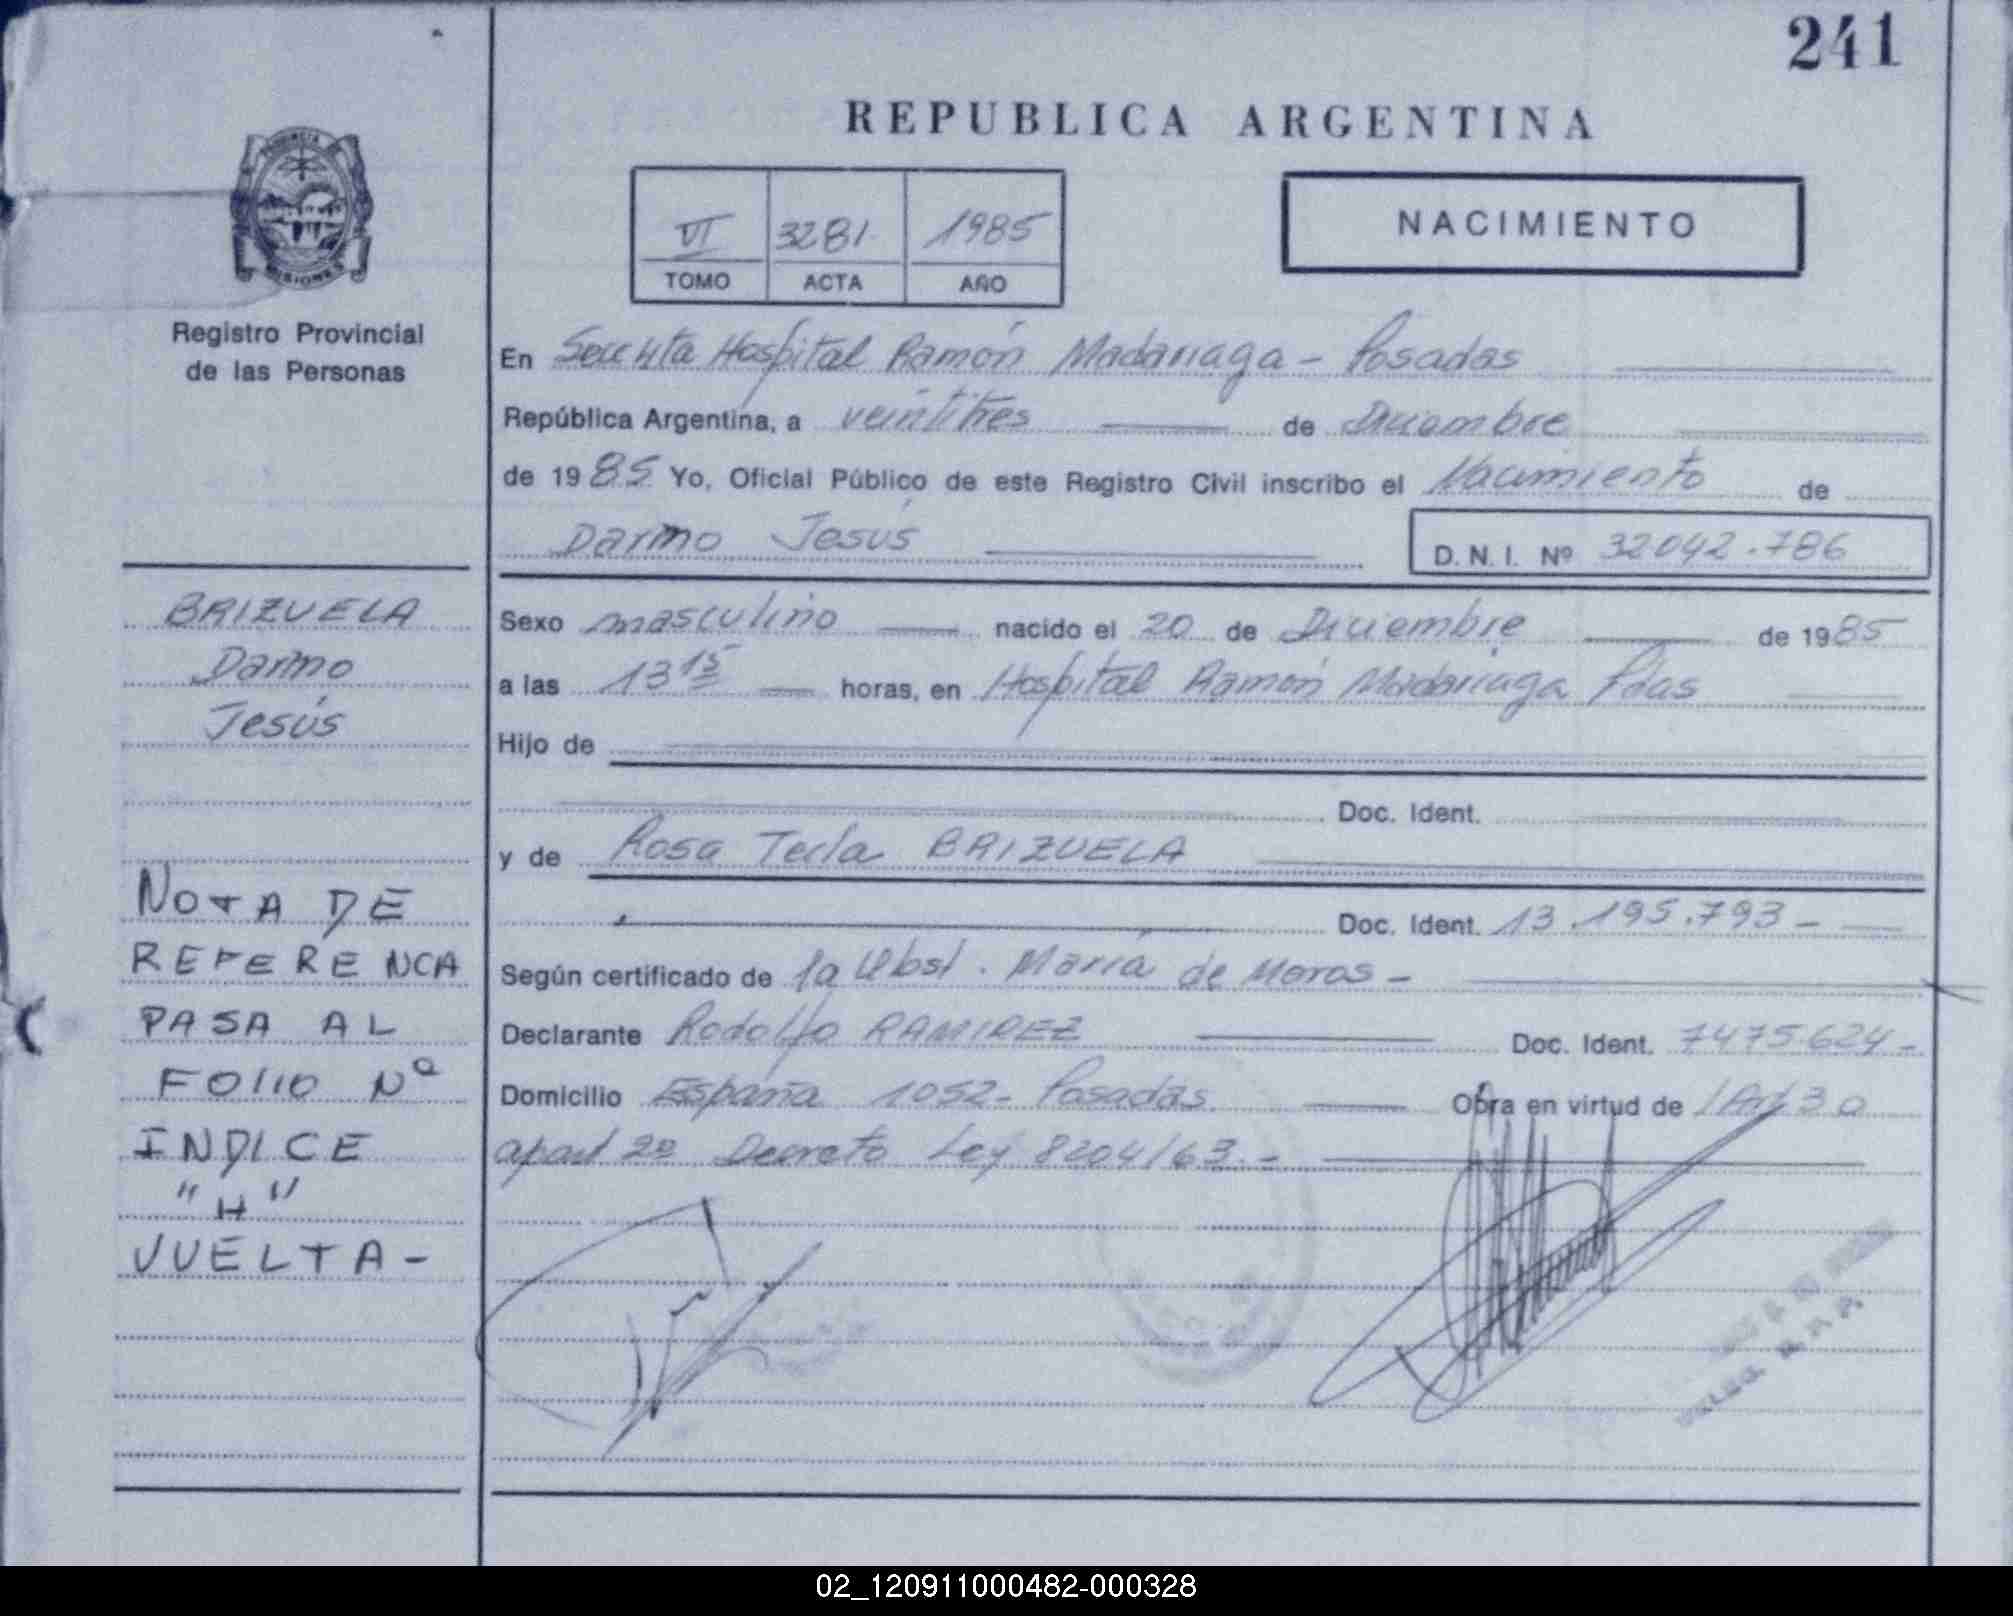 241
REPUBLICA ARGENTINA
PROVINCIA
MISIONES
Registro Provincial
de las Personas
VI 3281 1985
TOMO ACTA AÑO
NACIMIENTO
En Secc 4ta Hospital Ramón Madariaga - Posadas
República Argentina, a veintitres de Diciembre
de 1985 Yo, Oficial Público de este Registro Civil inscribo el Nacimiento de
Darino Jesús
D. N. I. Nº 32042.786
BRIZUELA
Darino
Jesús
Sexo masculino nacido el 20 de Diciembre de 1985
a las 13 15 horas, en Hospital Ramón Madariaga Pdas
Hijo de
Doc. Ident.
y de Rosa Tecla BRIZUELA
Doc. Ident. 13.195.793 -
Según certificado de la Obst. María de Moras -
Declarante Rodolfo RAMIREZ Doc. Ident. 7475.624 -
Domicilio España 1052 - Posadas Obra en virtud de Art 30
apart 2º Decreto Ley 8204/63. -
NOTA DE
REFERENCA
PASA AL
FOLIO Nº
INDICE
"H"
VUELTA -
02_120911000482-000328